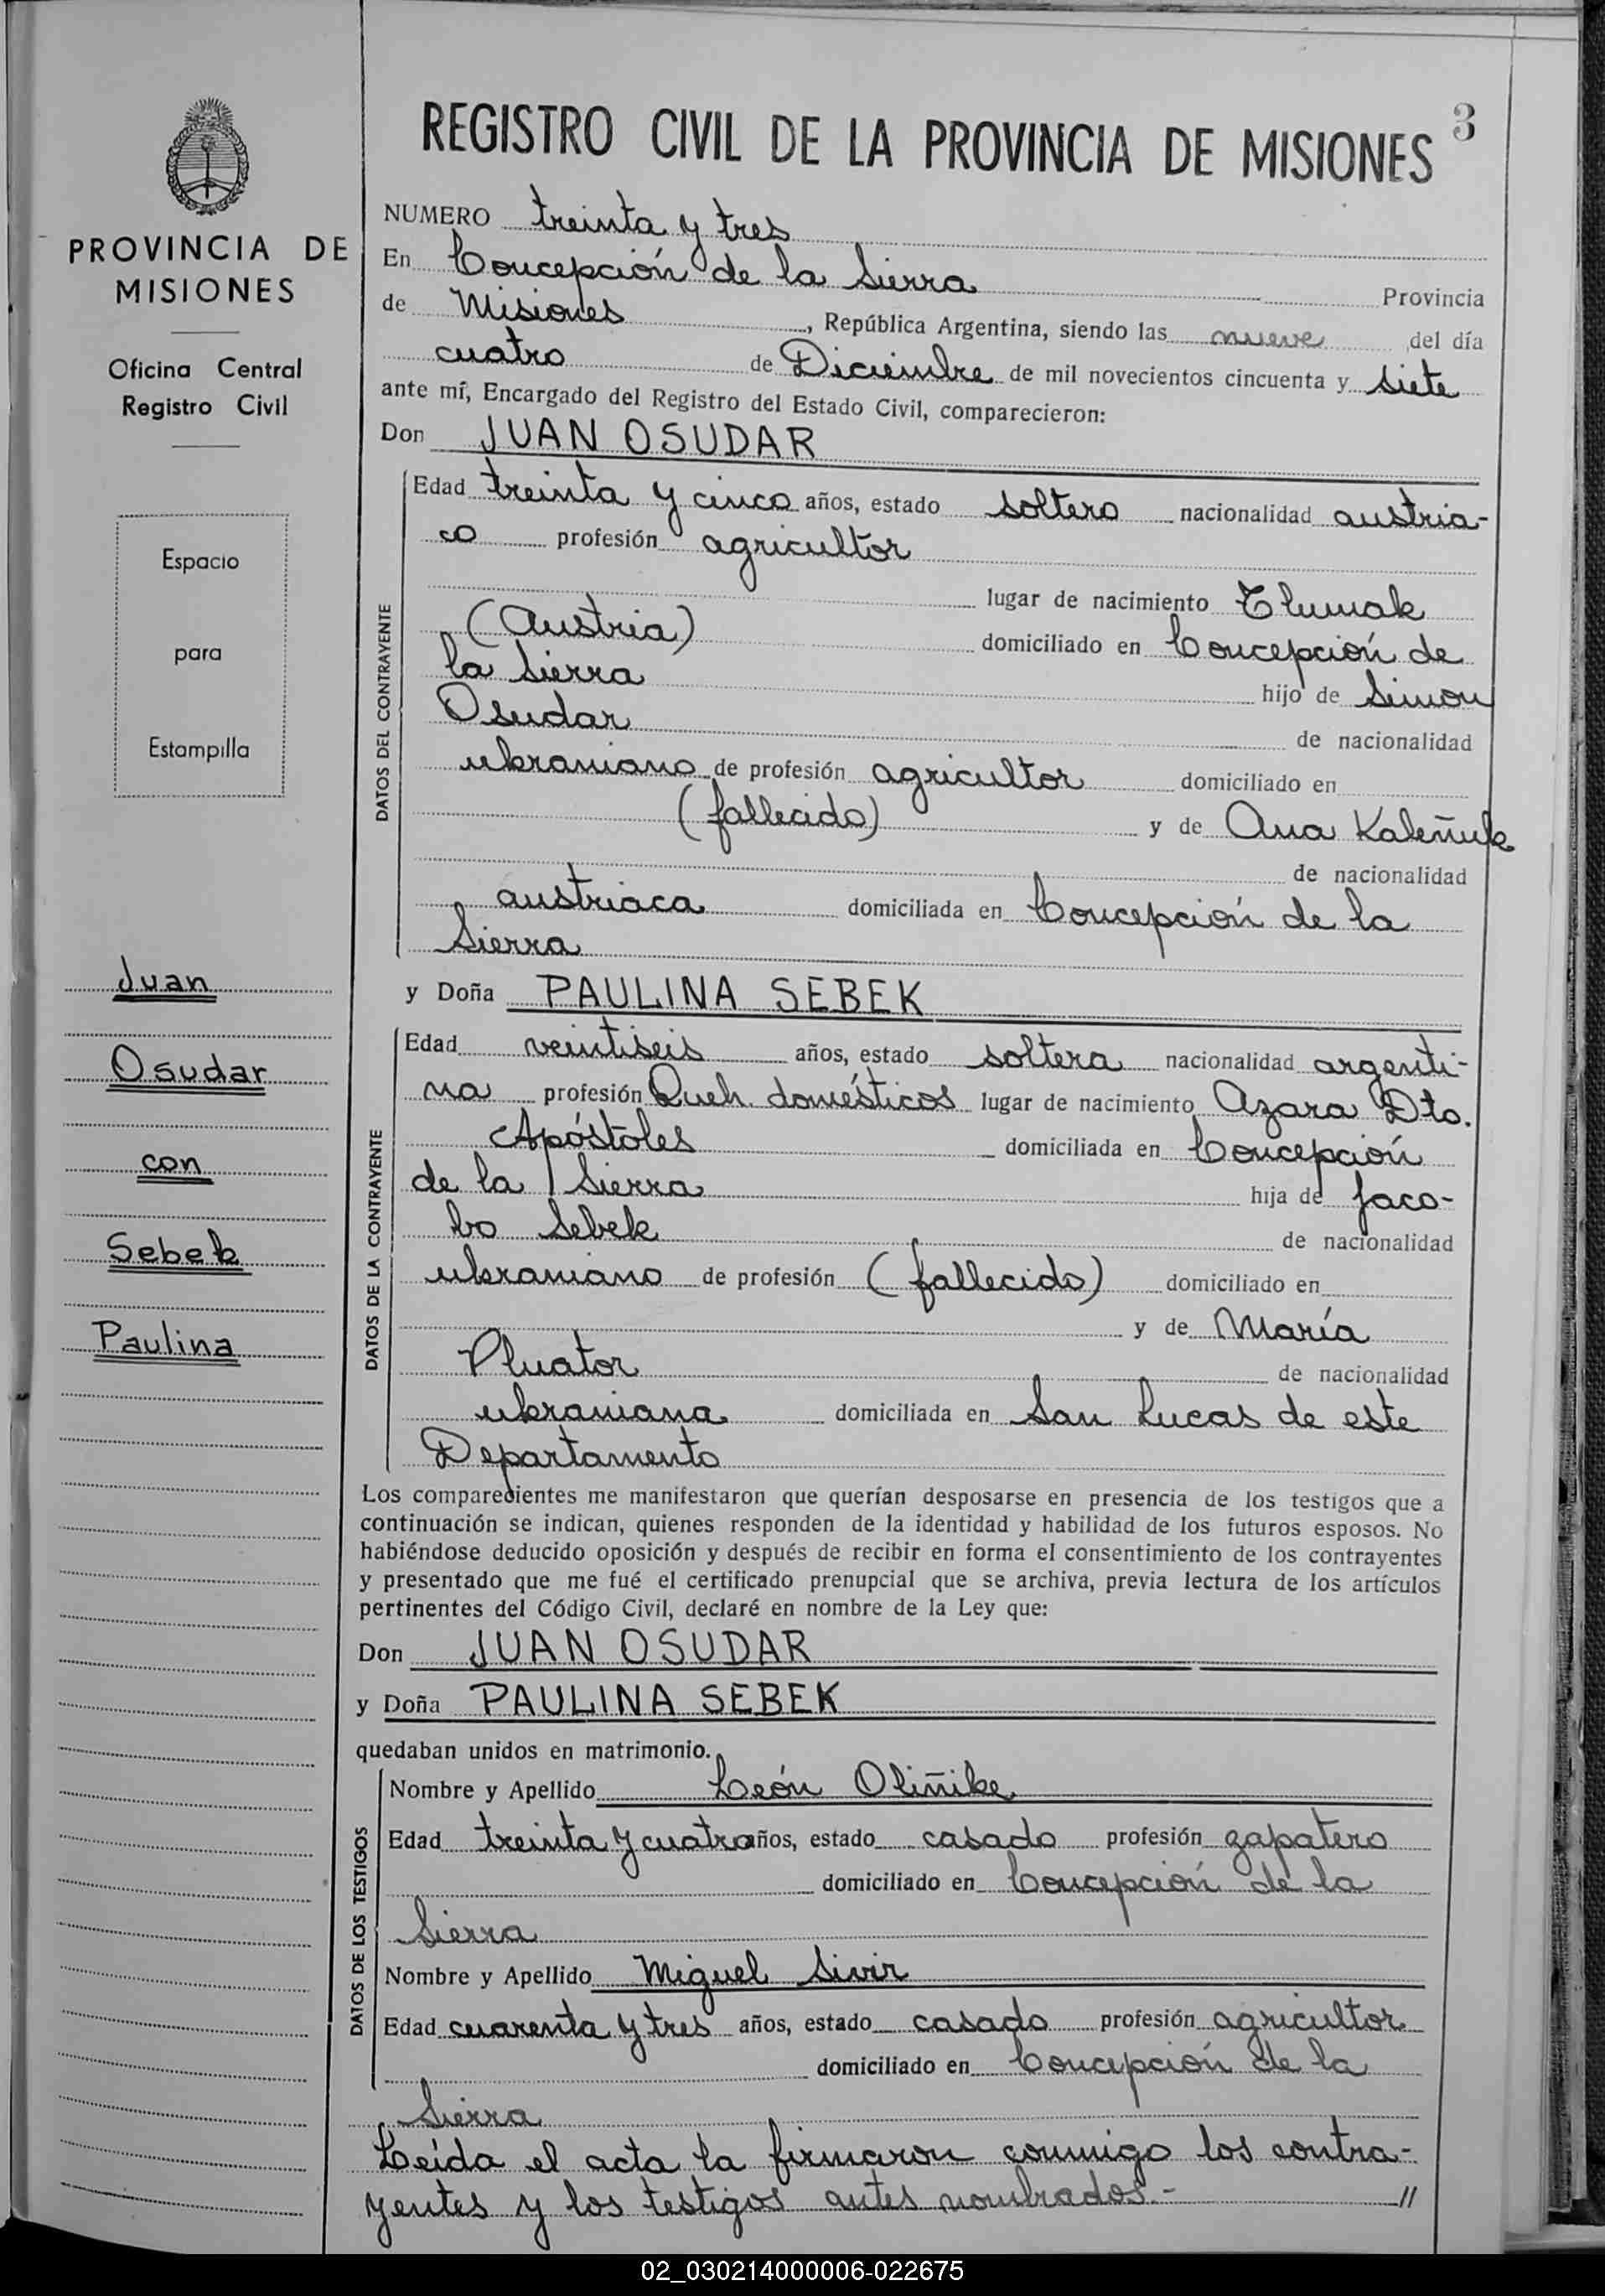 REGISTRO CIVIL DE LA PROVINCIA DE MISIONES 3
PROVINCIA DE
MISIONES
Oficina Central
Registro Civil
Espacio
para
Estampilla
Juan
Osudar
con
Sebek
Paulina
NUMERO treinta y tres
En Concepción de la Sierra Provincia
de Misiones, República Argentina, siendo las nueve del día
cuatro de Diciembre de mil novecientos cincuenta y siete
ante mí, Encargado del Registro del Estado Civil, comparecieron:
Don JUAN OSUDAR
DATOS DEL CONTRAYENTE
Edad treinta y cinco años, estado soltero nacionalidad austria-
co profesión agricultor
lugar de nacimiento Tlumak
(Austria) domiciliado en Concepción de
la Sierra hijo de Simon
Osudar de nacionalidad
ukraniano de profesión agricultor domiciliado en
(fallecido) y de Ana Kaleñuk
de nacionalidad
austriaca domiciliada en Concepción de la
Sierra
y Doña PAULINA SEBEK
DATOS DE LA CONTRAYENTE
Edad veintiseis años, estado soltera nacionalidad argenti-
na profesión Queh. domésticos lugar de nacimiento Azara Dto.
Apóstoles domiciliada en Concepción
de la Sierra hija de Jaco-
bo Sebek de nacionalidad
ukraniano de profesión (fallecido) domiciliado en
y de María
Pluator de nacionalidad
ukraniana domiciliada en San Lucas de este
Departamento
Los comparecientes me manifestaron que querían desposarse en presencia de los testigos que a
continuación se indican, quienes responden de la identidad y habilidad de los futuros esposos. No
habiéndose deducido oposición y después de recibir en forma el consentimiento de los contrayentes
y presentado que me fué el certificado prenupcial que se archiva, previa lectura de los artículos
pertinentes del Código Civil, declaré en nombre de la Ley que:
Don JUAN OSUDAR
y Doña PAULINA SEBEK
quedaban unidos en matrimonio.
DATOS DE LOS TESTIGOS
Nombre y Apellido León Oliñike
Edad treinta y cuatro años, estado casado profesión zapatero
domiciliado en Concepción de la
Sierra
Nombre y Apellido Miguel Sivir
Edad cuarenta y tres años, estado casado profesión agricultor
domiciliado en Concepción de la
Sierra
Leída el acta la firmaron conmigo los contra-
yentes y los testigos antes nombrados.- //
02_030214000006-022675